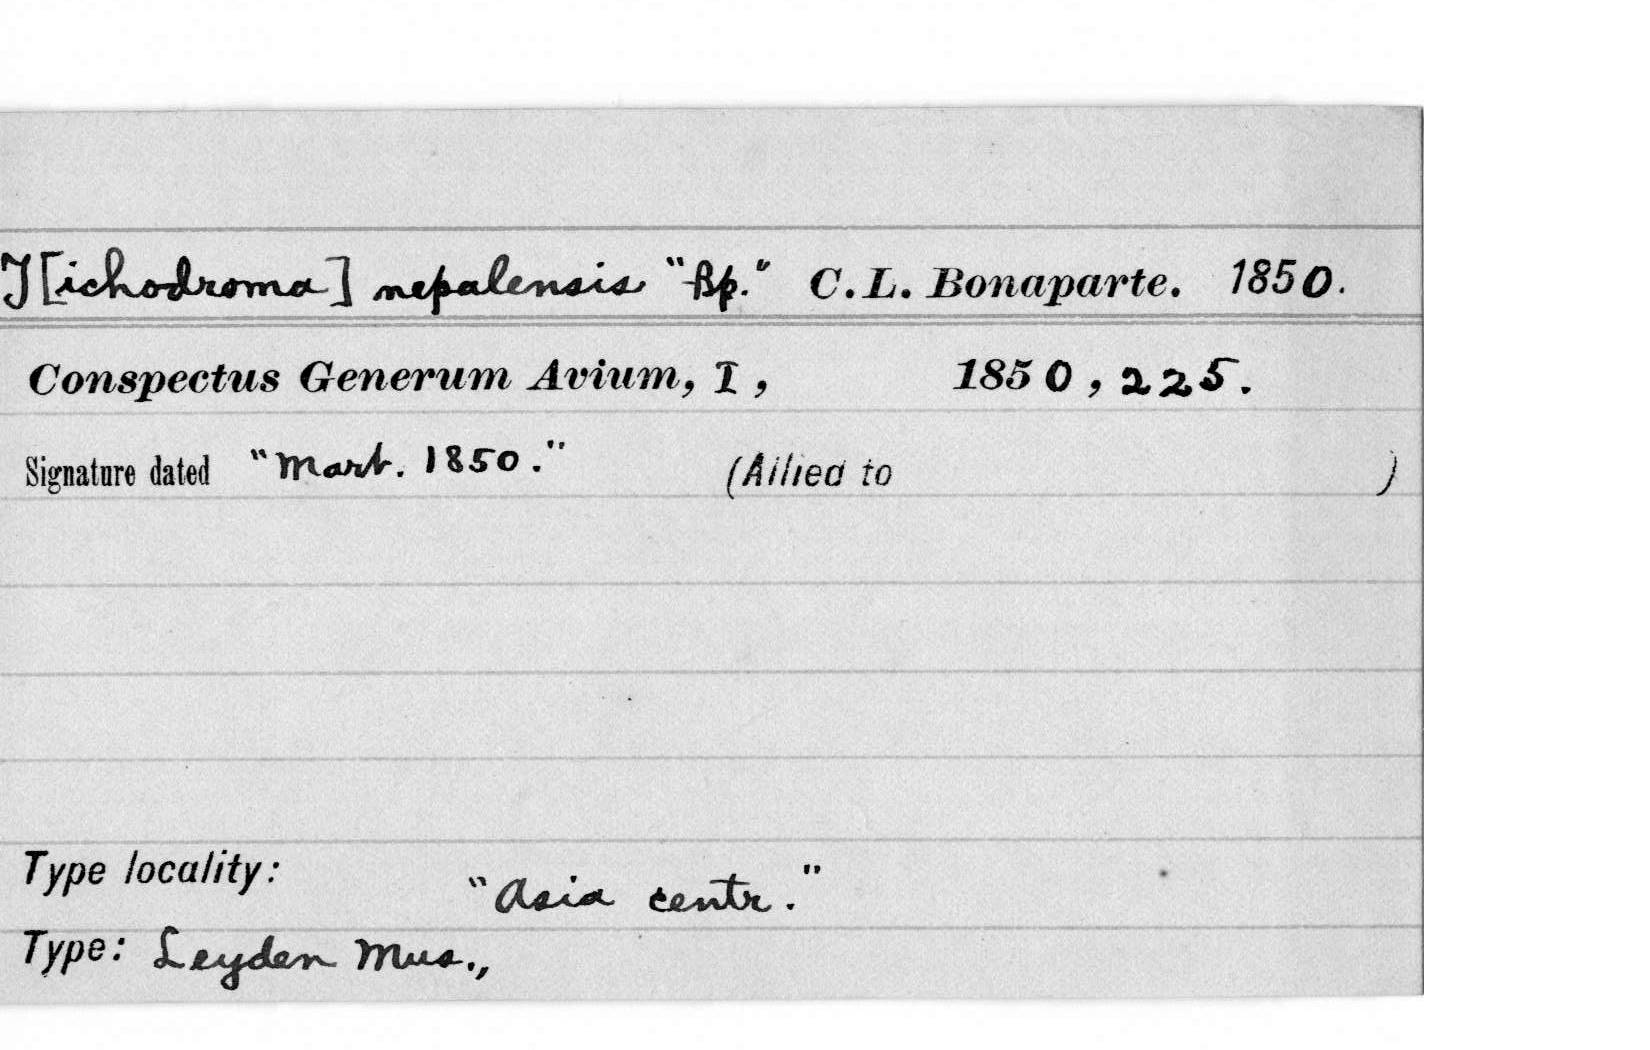 T[ichodroma] nepalensis "Bp." C. L. Bonaparte. 1850.
Conspectus Generum Avium, I, 1850, 225.
Signature dated "Mart. 1850." (Allied to )
Type locality: "Asia centr."
Type: Leyden Mus.,